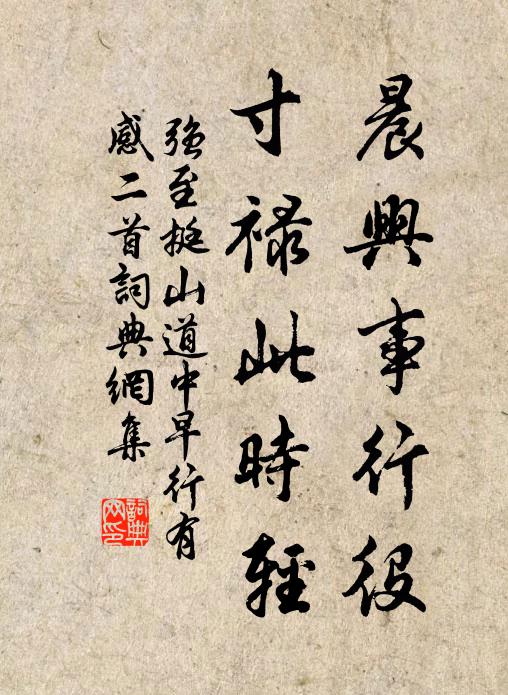 晨興事行役
寸禄此時輕
強至挺山道中早行有
感二首詞典網集
詞典
网印